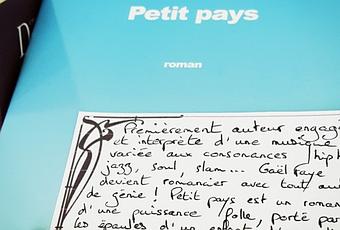 Petit pays
roman
Premièrement auteur engag
et interprète d'une musique
variée aux consonances hip h
jazz, soul, slam... Gaël Faye
devient romancier avec tout au
de génie ! Petit pays est un roman
d'une puissance folle, porté par
les épaules d'un enfant